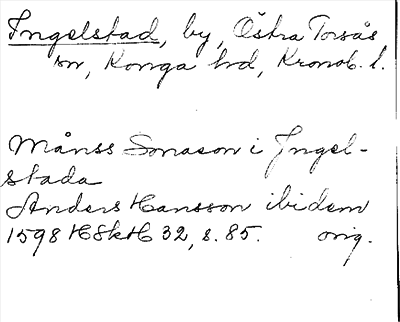 Ingelstad, by, Östra Torsås
sn, Konga hd, Kronob. l.
Månss Jonason i Ingel-
stada
Anders Hansson ibidem
1598 HSkH 32, s. 85. orig.